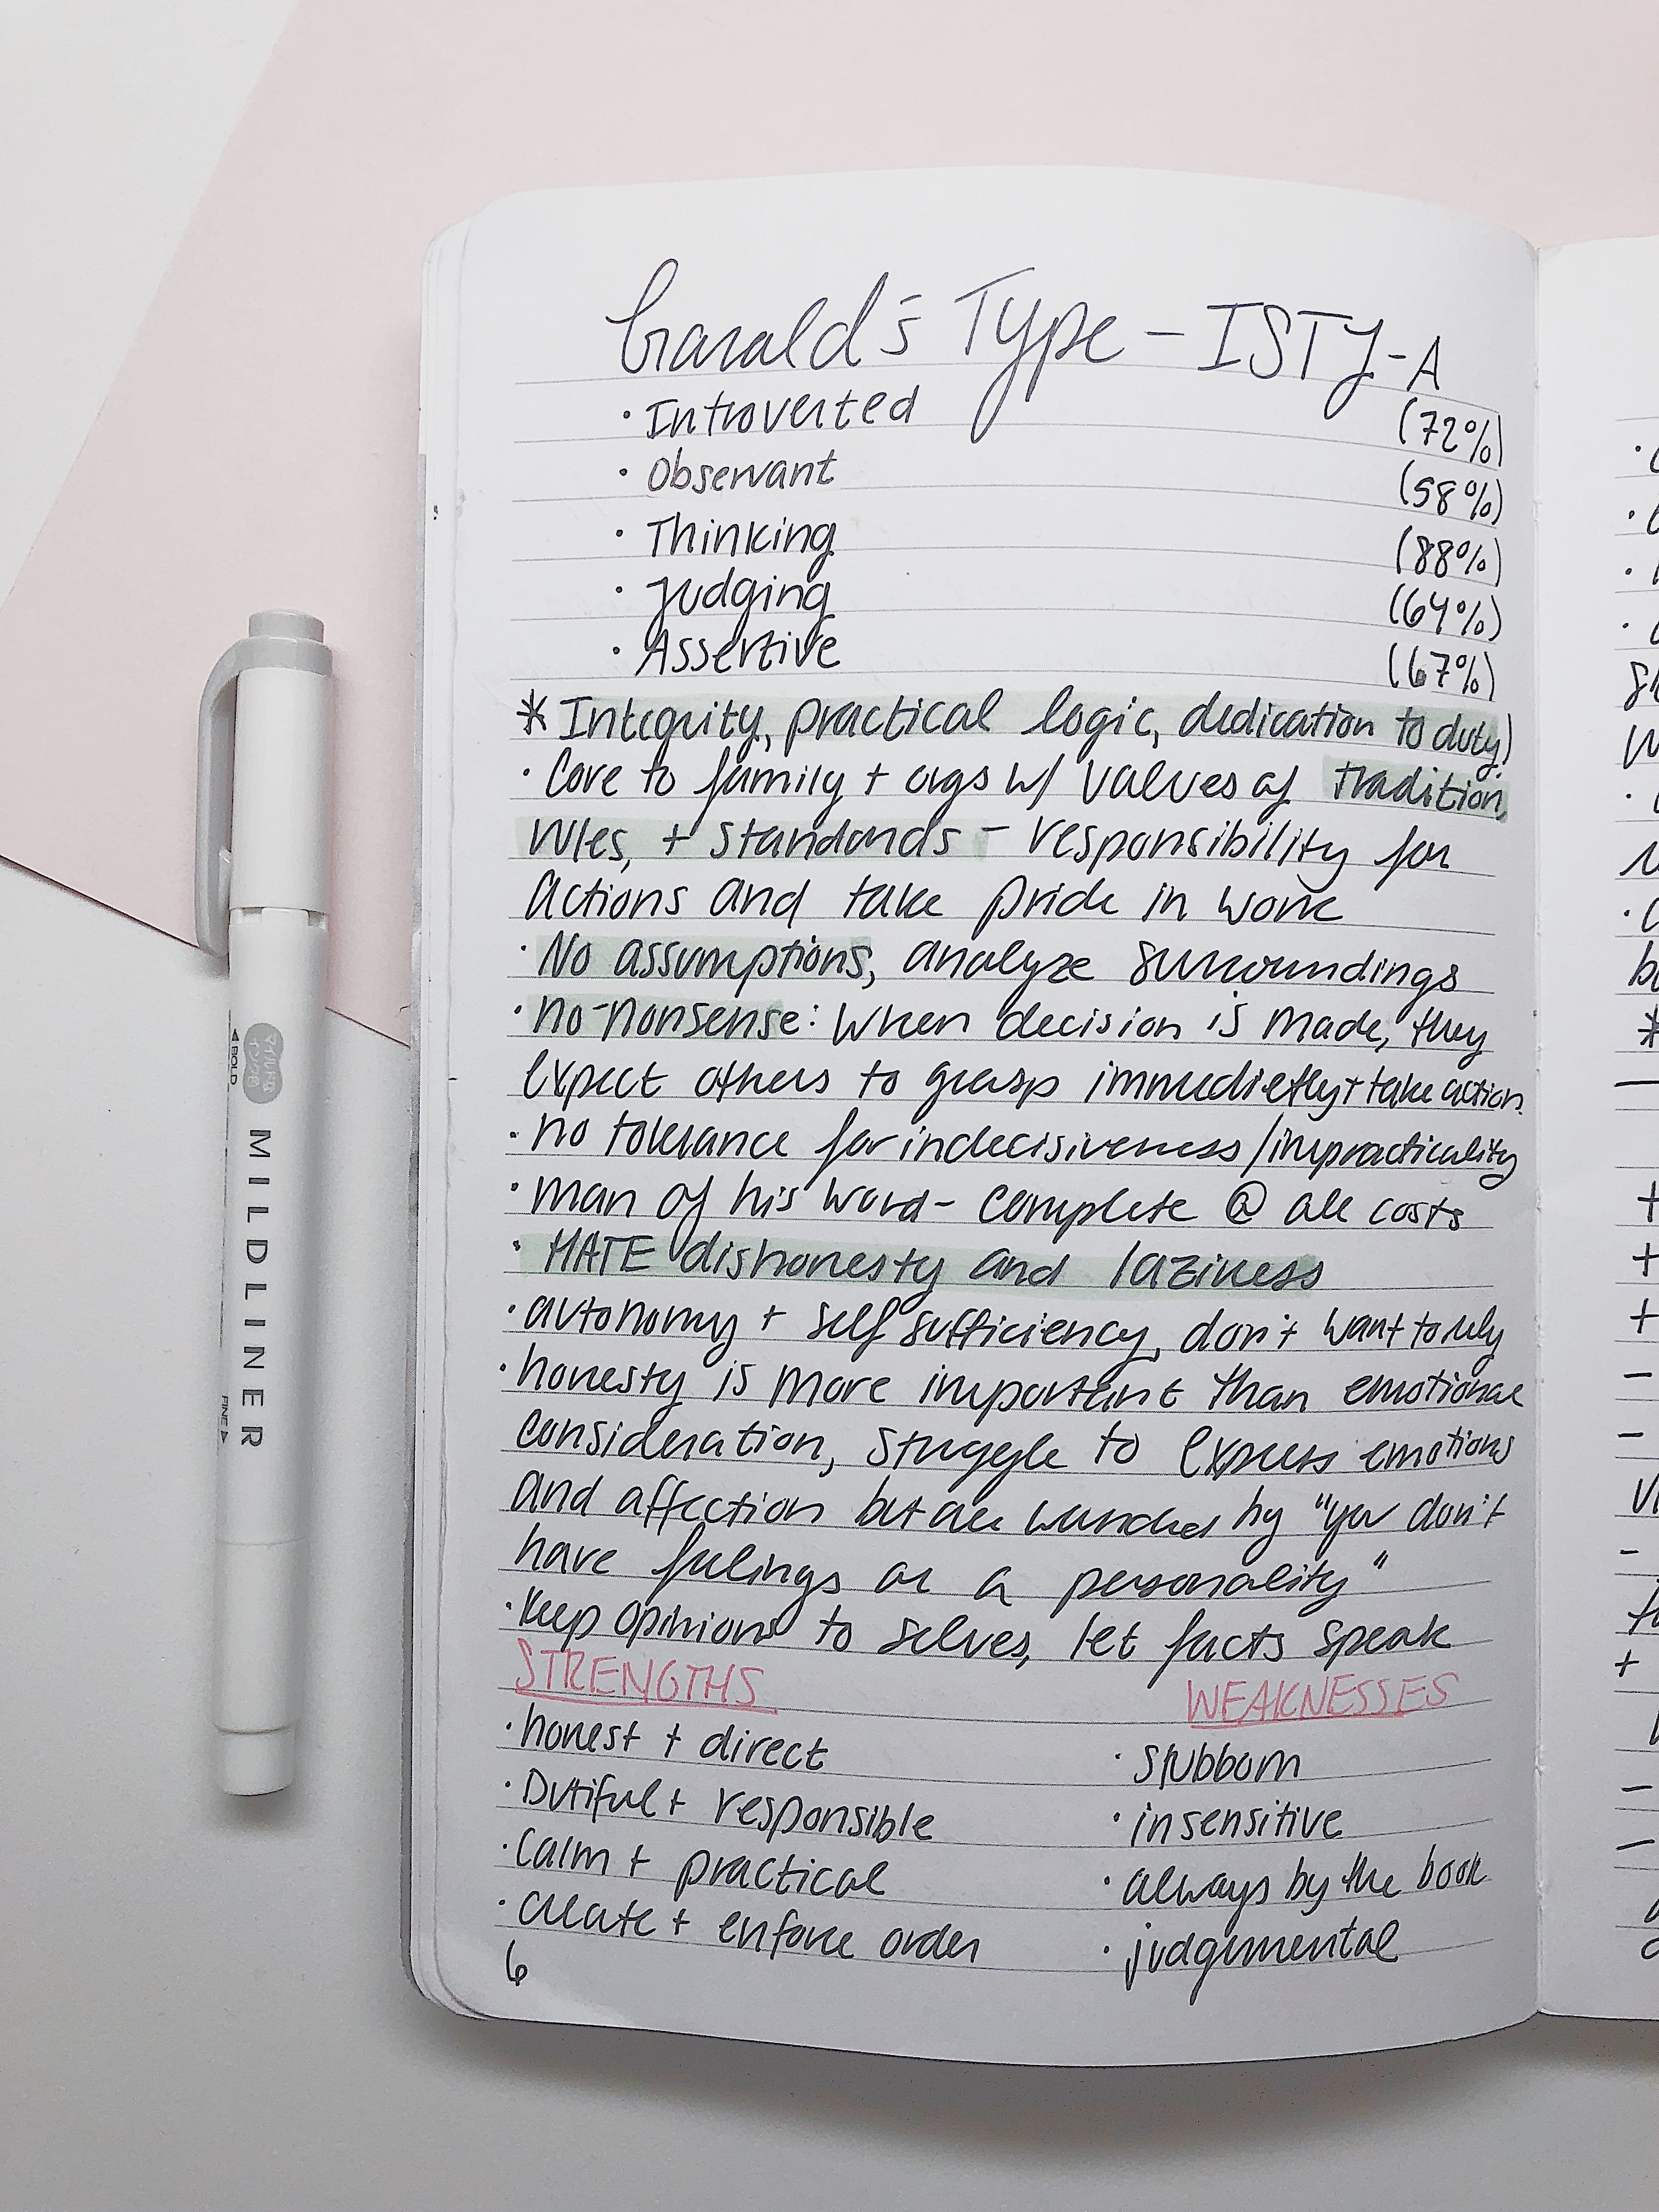 Garald's Type - ISTJ-A
· Introverted (72%)
· Observant (58%)
· Thinking (88%)
· Judging (64%)
· Assertive (67%)
* Integrity, practical logic, dedication to duty)
· Core to family + orgs w/ values of tradition,
rules, + standards - responsibility for
actions and take pride in work
· No assumptions, analyze surroundings
· no-nonsense: When decision is made, they
expect others to grasp immedietly + take action.
· no tolerance for indecisiveness/impracticality
· man of his word - complete @ all costs
· HATE dishonesty and laziness
· autonomy + self sufficiency, don't want to rely
· honesty is more important than emotional
consideration, struggle to express emotions
and affection but are wounded by "you don't
have feelings or a personality"
· Keep opinions to selves, let facts speak
STRENGTHS WEAKNESSES
· honest + direct · stubborn
· Dutiful + responsible · insensitive
· Calm + practical · always by the book
· create + enforce order · judgmental
6
◀ BOLD
MILDLINER
FINE ▶